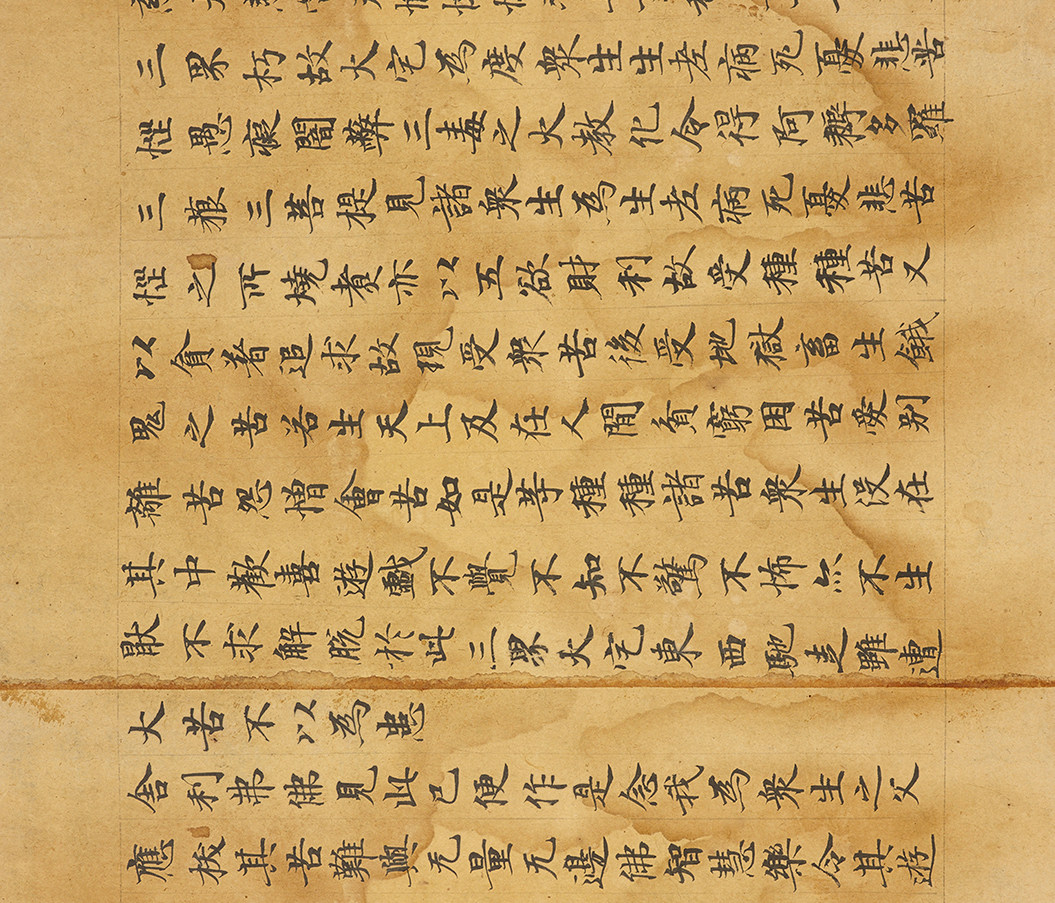 三界朽故火宅為度衆生生老病死憂悲苦
惱愚癡闇蔽三毒之火教化令得阿耨多羅
三藐三菩提見諸衆生為生老病死憂悲苦
惱之所燒煮亦以五欲財利故受種種苦又
以貪著追求故現受衆苦後受地獄畜生餓
鬼之苦若生天上及在人間貧窮困苦愛別
離苦怨憎會苦如是等種種諸苦衆生没在
其中歡喜遊戲不覺不知不驚不怖亦不生
厭不求解脫於此三界火宅東西馳走雖遭
大苦不以為患
舍利弗佛見此已便作是念我為衆生之父
應拔其苦難與无量无邊佛智慧樂令其遊